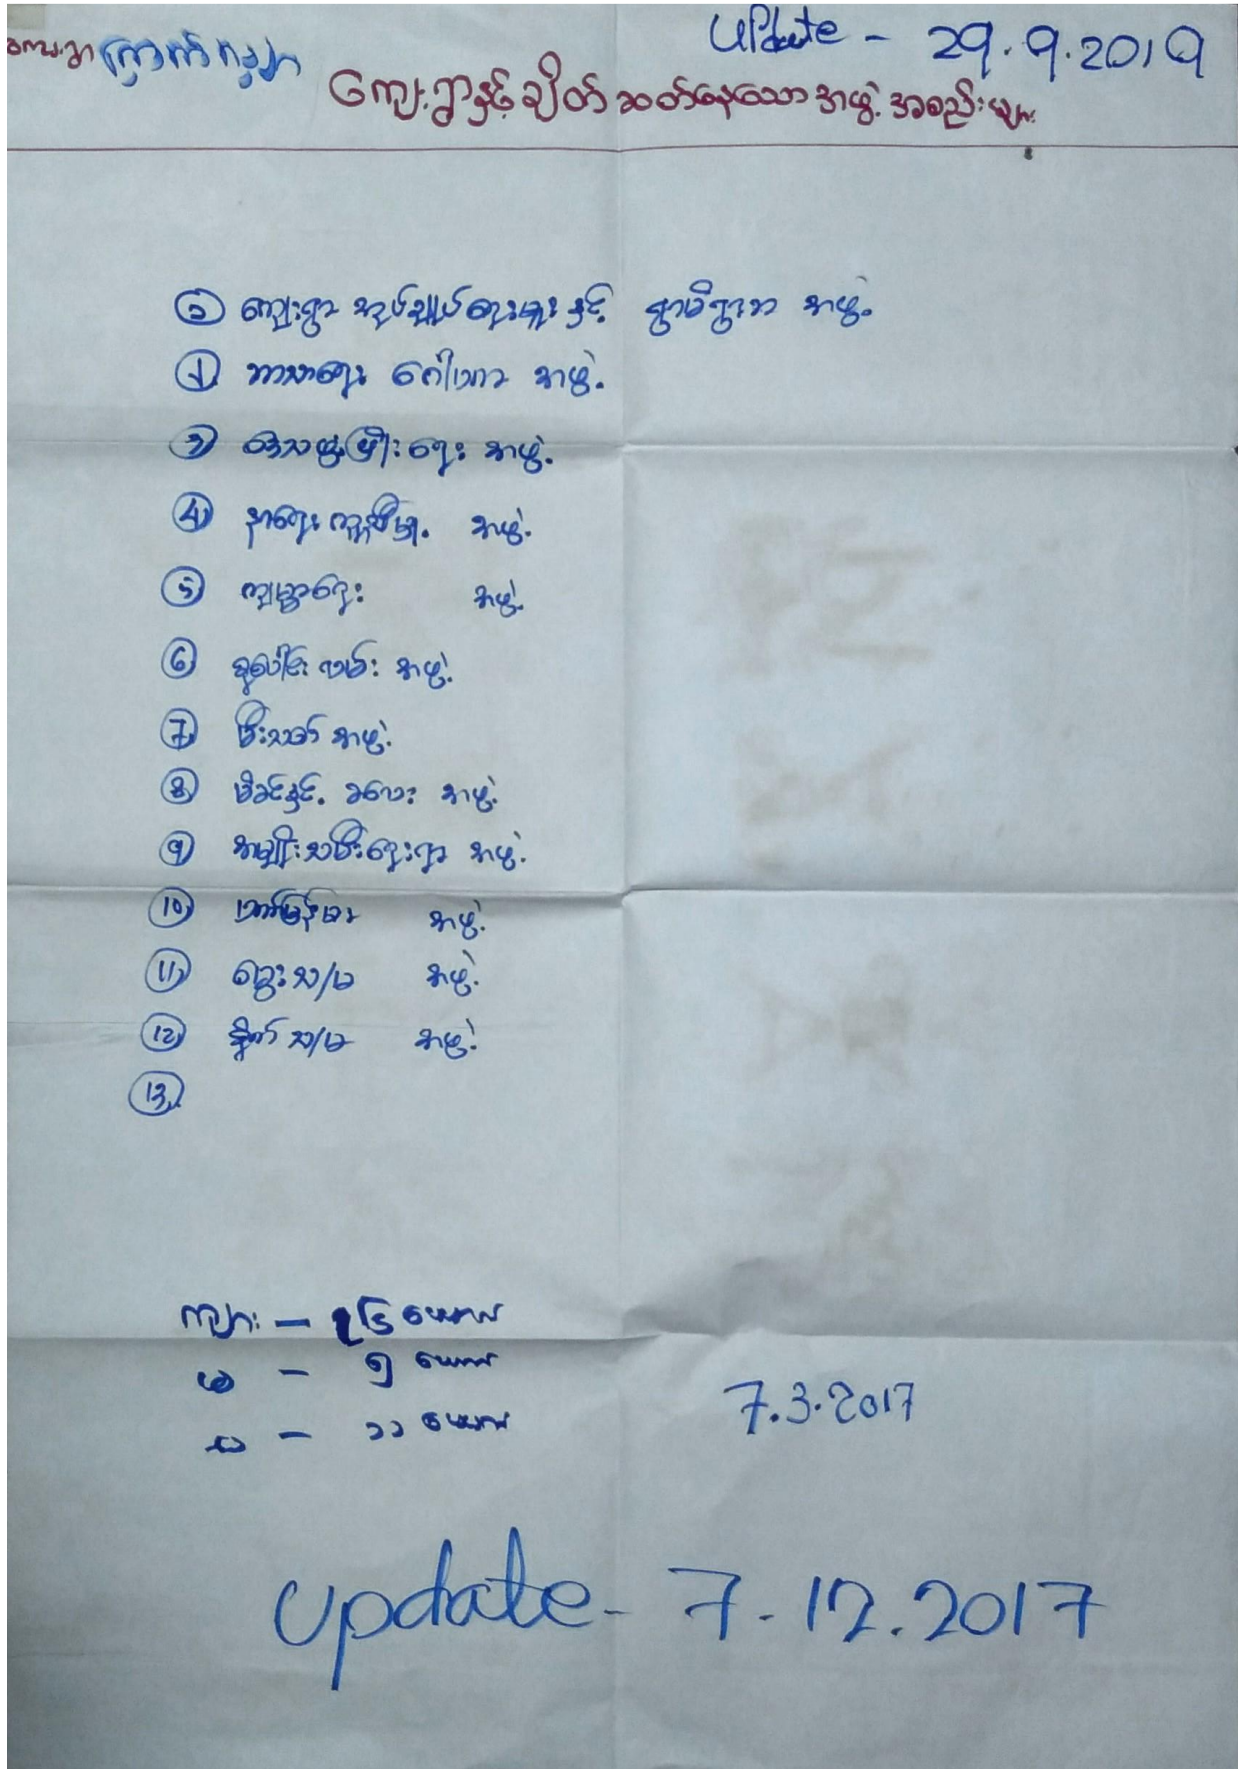 Update - 29.9.2019
ကျေးရွာ
ကျေးရွာနှင့်ချိတ်ဆက်နေသောအဖွဲ့အစည်းများ
① ကျေးရွာ အုပ်ချုပ်ရေးမှူးနှင့် ရွာမိရွာဖ အဖွဲ့
② ဘာသာရေး ဂေါပက အဖွဲ့
③ ဒေသဖွံ့ဖြိုးရေး အဖွဲ့
④ နာရေးကူညီမှု အဖွဲ့
⑤ ကျန်းမာရေး အဖွဲ့
⑥ စုပေါင်း အဖွဲ့
⑦ မီးသတ် အဖွဲ့
⑧ မိခင်နှင့် ခလေး အဖွဲ့
⑨ အမျိုးသမီးရေးရာ အဖွဲ့
⑩ အဖွဲ့
⑪ သ/မ အဖွဲ့
⑫ သ/မ အဖွဲ့
⑬
ကျား -
မ - ၅ ယောက်
- ၁၁ ယောက်
7.3.2017
update - 7.12.2017